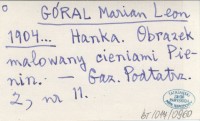 GÓRAL Marian Leon
1904... Hanka. Obrazek
malowany cieniami Pie-
nin. — Gaz. Podtatrz.
2, nr 11.